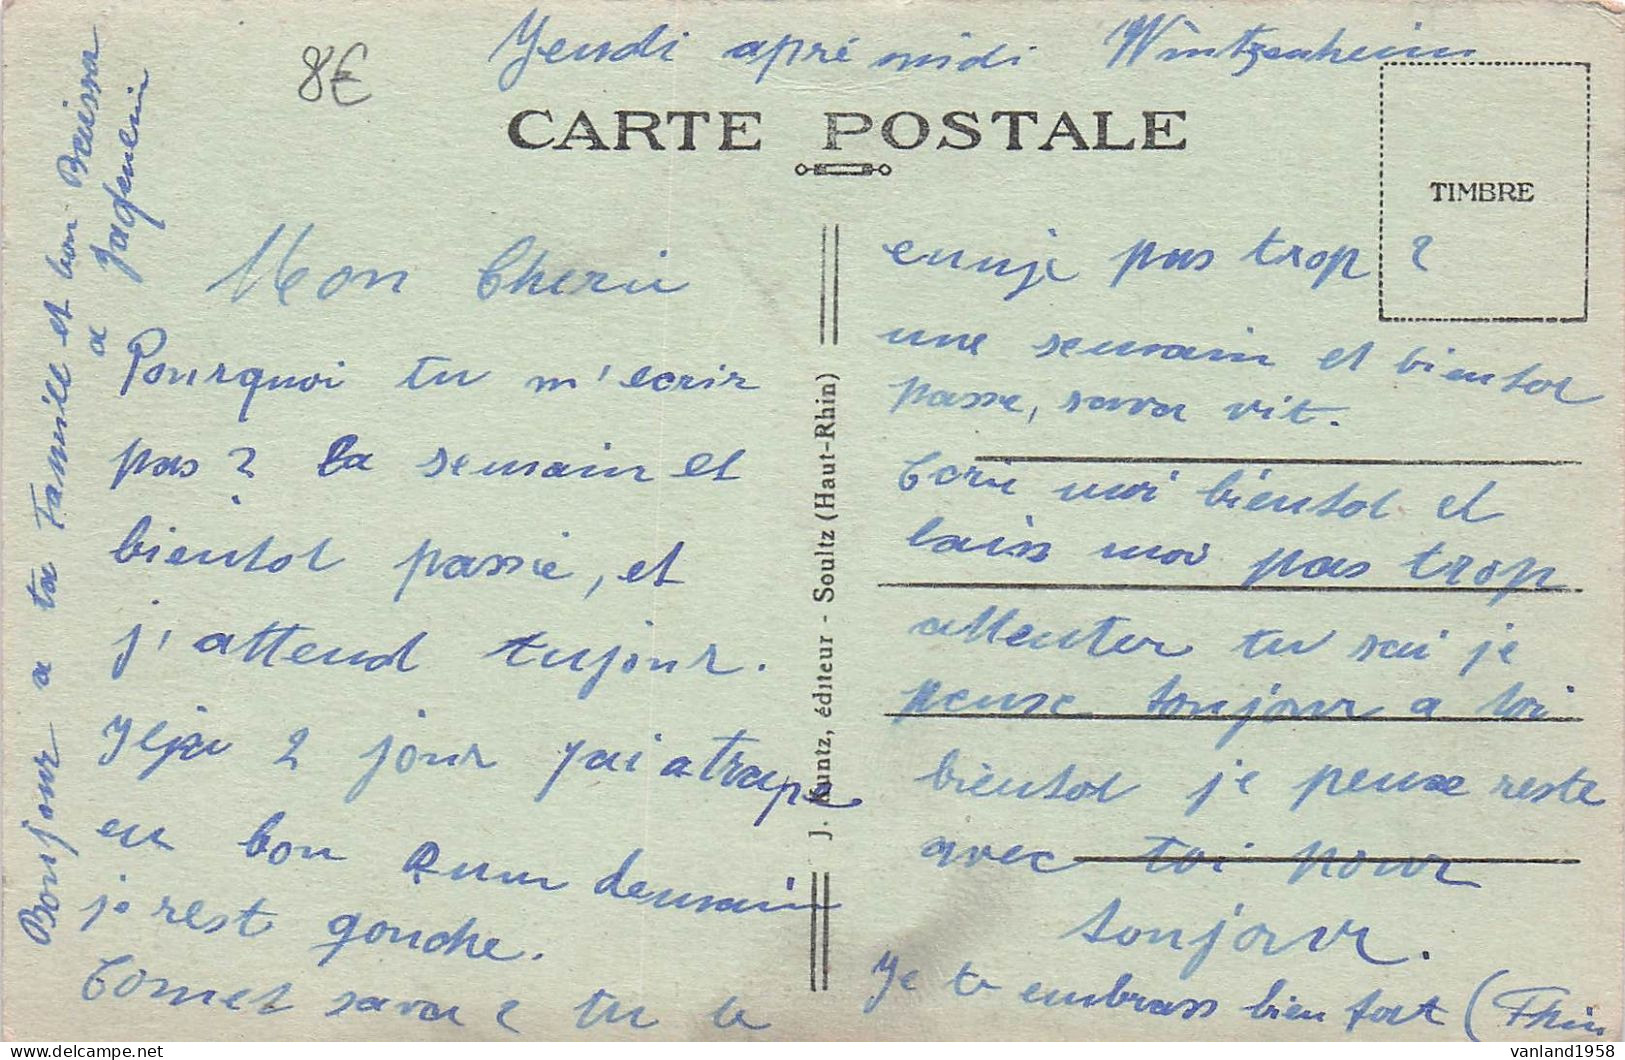 8€
Jeudi apré midi Wintzenheim
CARTE POSTALE
TIMBRE
Mon Cherie
Pourquoi tu m'ecrir
pas ? La semain et
bientot passie, et
j'attend tujour.
Jeja 2 jour j'ai atrape
en bon Rum demain
je rest gouche.
Comet sava ? tu te
ennje pas trop ?
une semain et bientot
passe, sava vit.
Ecrie moi bientot et
laiss moi pas trop
attenter tu sai je
pense toujour a toi
bientot je peuse reste
avec toi pour
toujour.
Je te embrass bien fort (Thin
Bonjour a ta Famille et bon Beissa
a Jaqulin
J. Kuntz, éditeur - Soultz (Haut-Rhin)
vanland1958